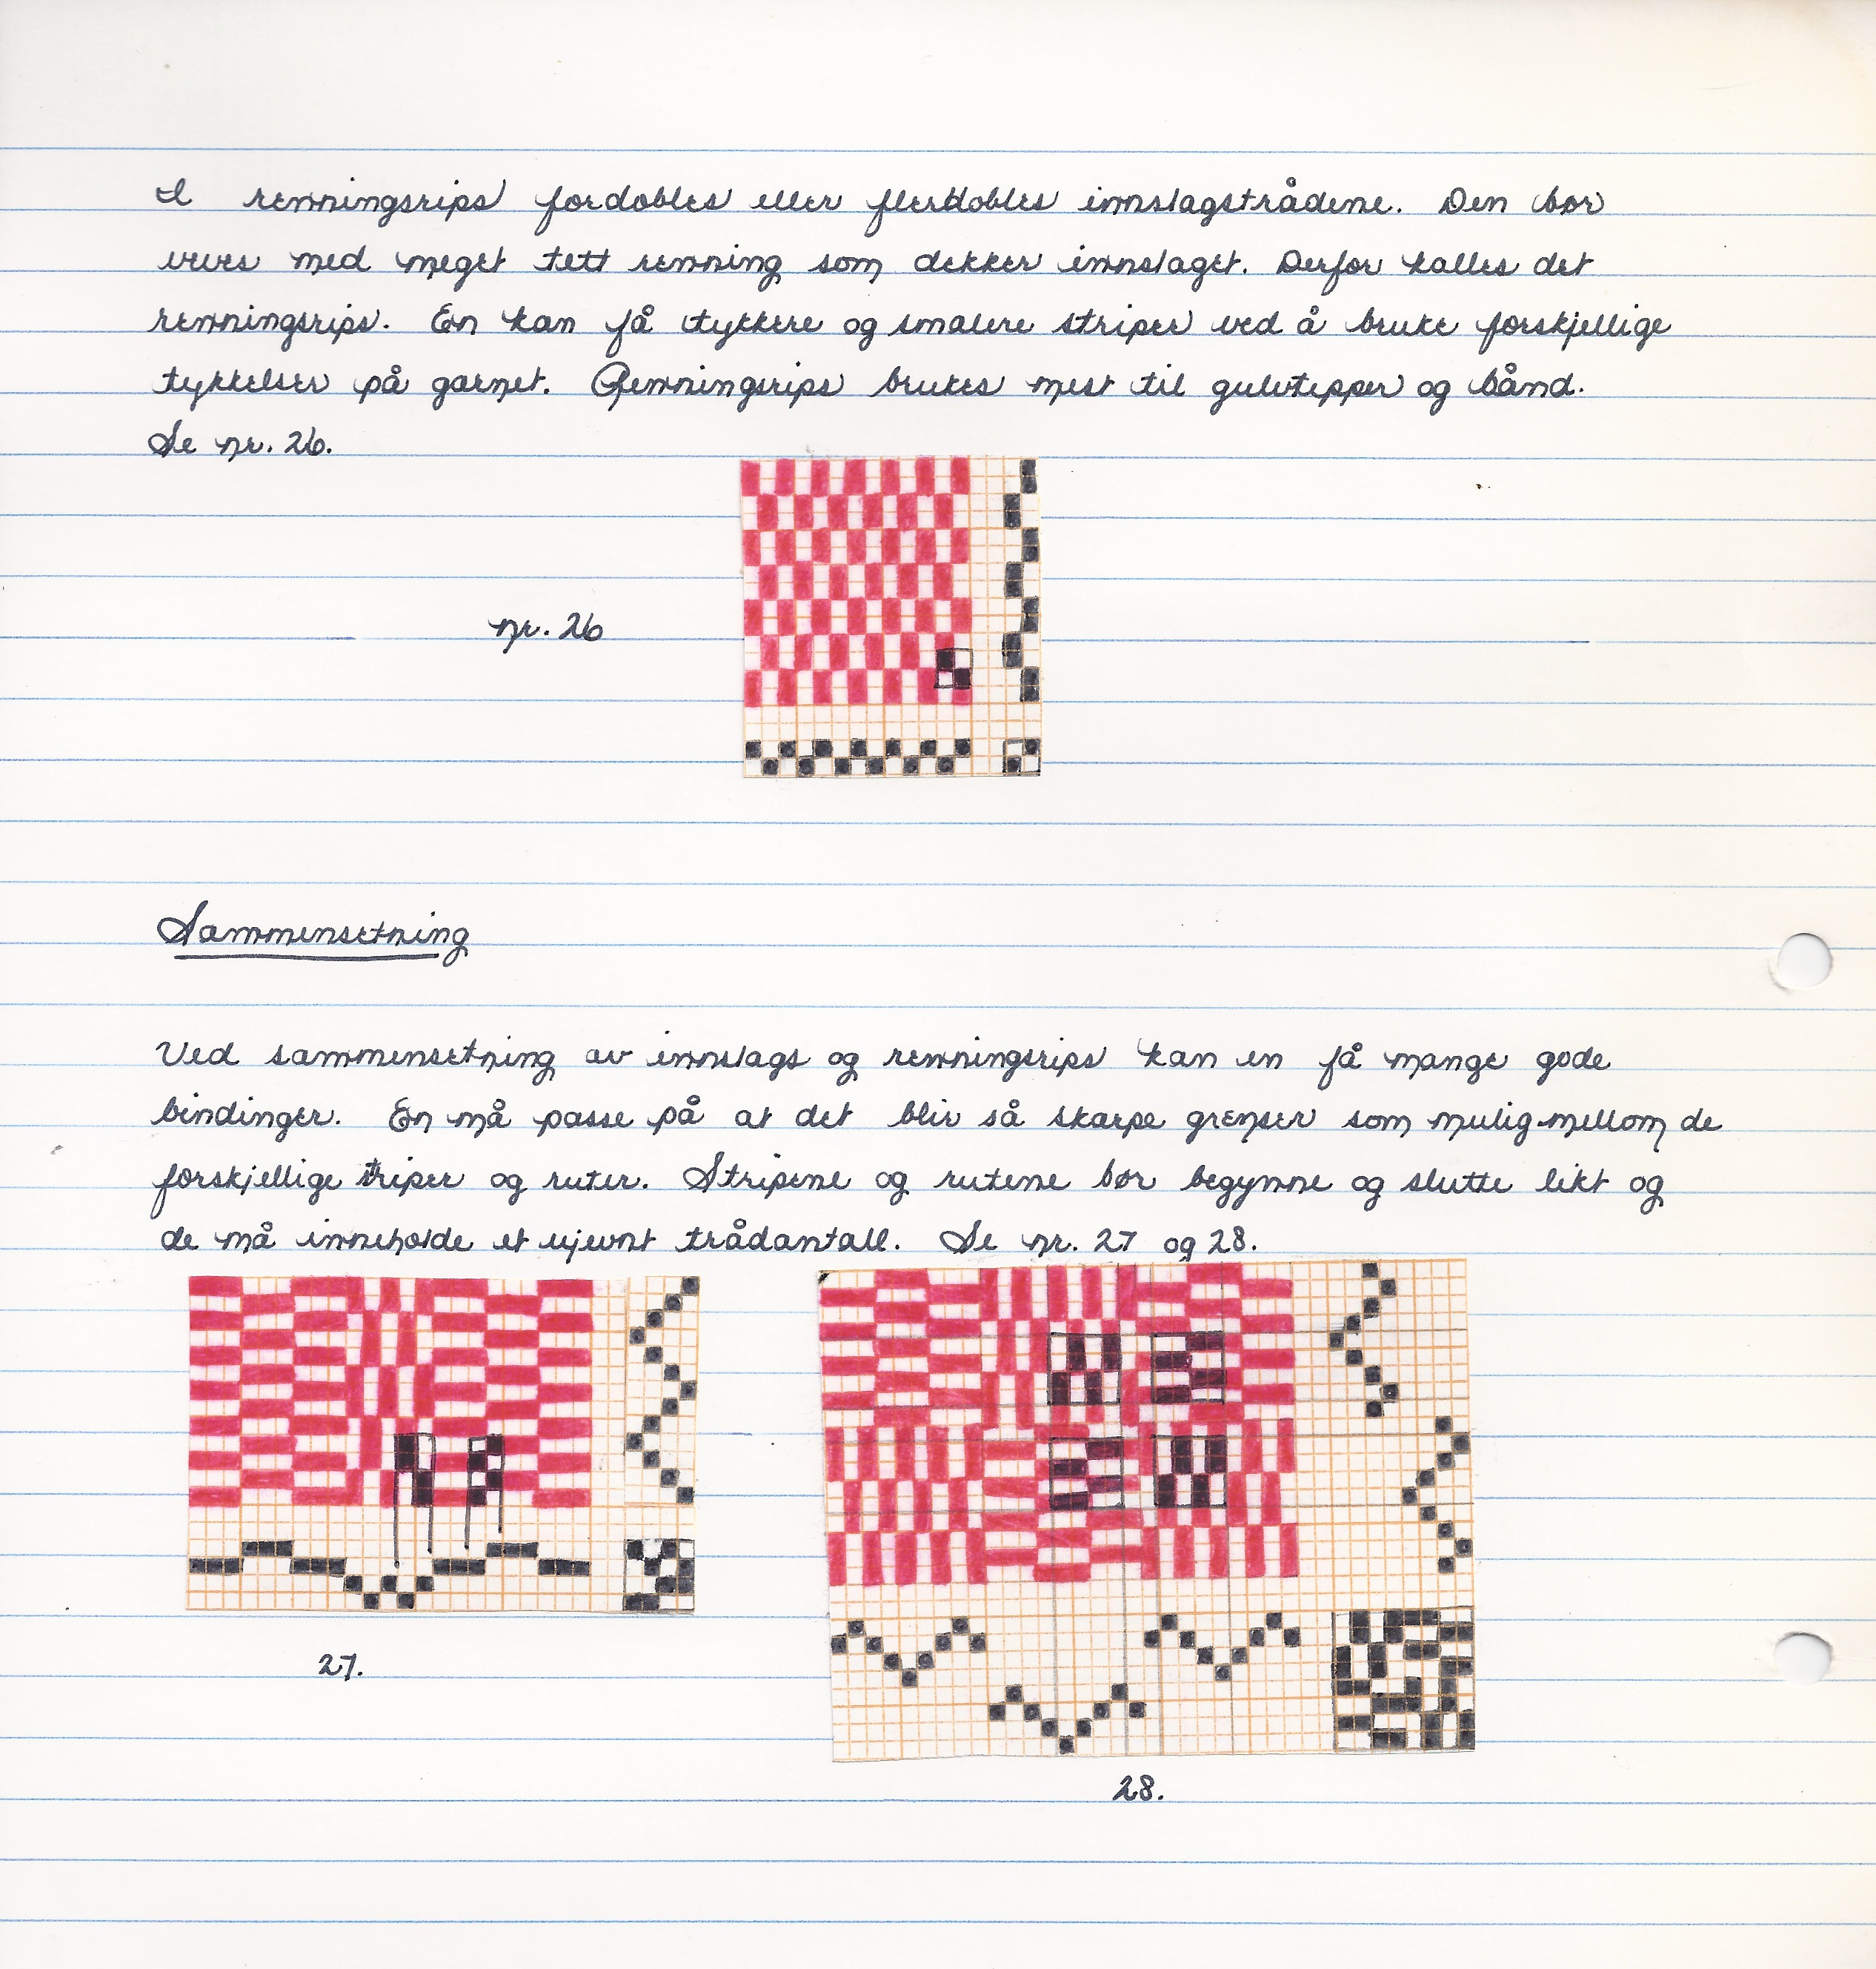 I renningsrips fordobles eller flerdobles innslagstrådene. Den bør
veves med meget tett renning som dekker innslaget. Derfor kalles det
renningsrips. En kan få tykkere og smalere striper ved å bruke forskjellige
tykkelser på garnet. Renningsrips brukes mest til gulvtepper og bånd.
Se nr. 26.
nr. 26
Sammensetning
Ved sammensetning av innslags og renningsrips kan en få mange gode
bindinger. En må passe på at det blir så skarpe grenser som mulig mellom de
forskjellige striper og ruter. Stripene og rutene bør begynne og slutte likt og
de må inneholde et ujevnt trådantall. Se nr. 27 og 28.
27.
28.